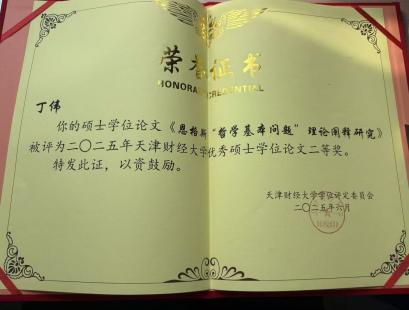 荣誉证书
HONORARY CREDENTIAL
丁伟
你的硕士学位论文《恩格斯“哲学基本问题”理论阐释研究》
被评为二〇二五年天津财经大学优秀硕士学位论文二等奖。
特发此证，以资鼓励。
天津财经大学学位评定委员会
二〇二五年六月